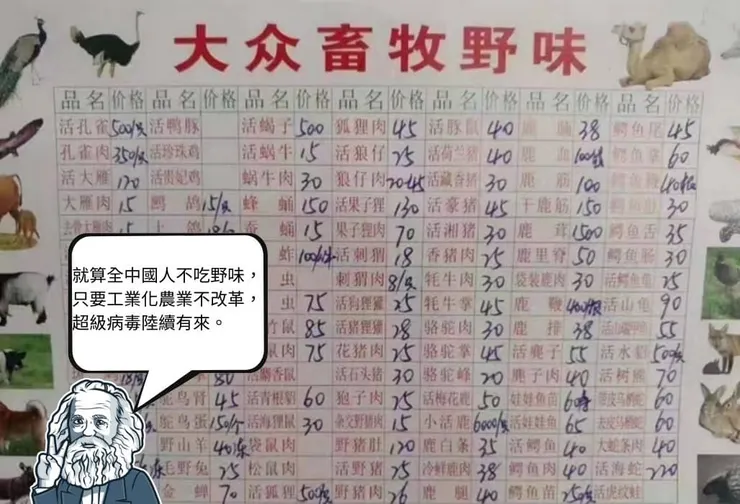 大众畜牧野味
品名 价格 品名 价格 品名 价格 品名 价格 品名 价格 品名 价格 品名 价格
活孔雀 500/只 活鸭豚 活蝎子 500 狐狸肉 45 活豚鼠 40 38 鳄鱼尾 45
孔雀肉 350/只 活珍珠鸡 活蜗牛 15 活狼仔 25 活荷兰猪 40 鹿血 鳄鱼掌 60
活大雁 120 活贵妃鸡 蜗牛肉 30 狼仔肉 20-45 活藏香猪 30 鹿筋 100
大雁肉 15 鹧鸪 15/只 蜂蛹 150 活果子狸 130 活豪猪 45 干鹿筋 150 30
蚕蛹 15 果子狸肉 70 活湘猪 30 鹿茸 1500 鳄鱼舌 35
蚱 活刺猬 18 香猪肉 25 鹿里脊 50 鳄鱼肠 30
虫 刺猬肉 8/只 牦牛肉 30 袋装鹿肉 30 活鳄鱼龟 25
虫 75 活狗狸獾 25 牦牛掌 45 鹿鞭 活山龟 90
竹鼠 85 活猪狸獾 28 骆驼肉 30 鹿排 38 55
鼠肉 75 花猪肉 25 骆驼掌 45 活麂子 55 活水貂 500/只
活麝香鼠 活石头猪 30 骆驼峰 20 麂子肉 40 活树熊 70
鸵鸟肾 45 活青根貂 60 狍子肉 25 活梅花鹿 50 娃娃鱼苗 60
鸵鸟蛋 150/个 活海狸鼠 30 杂交野猪肉 15 小活鹿 6000/只 活娃娃鱼 65 60
野山羊 袋鼠肉 野猪肚 120 鹿白条 35 活鳄鱼 40 大蛇条肉 40
毛野兔 25 松鼠肉 活野猪 25 冷鲜鹿肉 38 鳄鱼肉 40 活海蛇 220
金蝉 70 活狐狸 500/只 野猪肉 26 鹿腿 40 鳄鱼苗 250/条 活虎纹蛙
就算全中國人不吃野味，
只要工業化農業不改革，
超級病毒陸續有來。